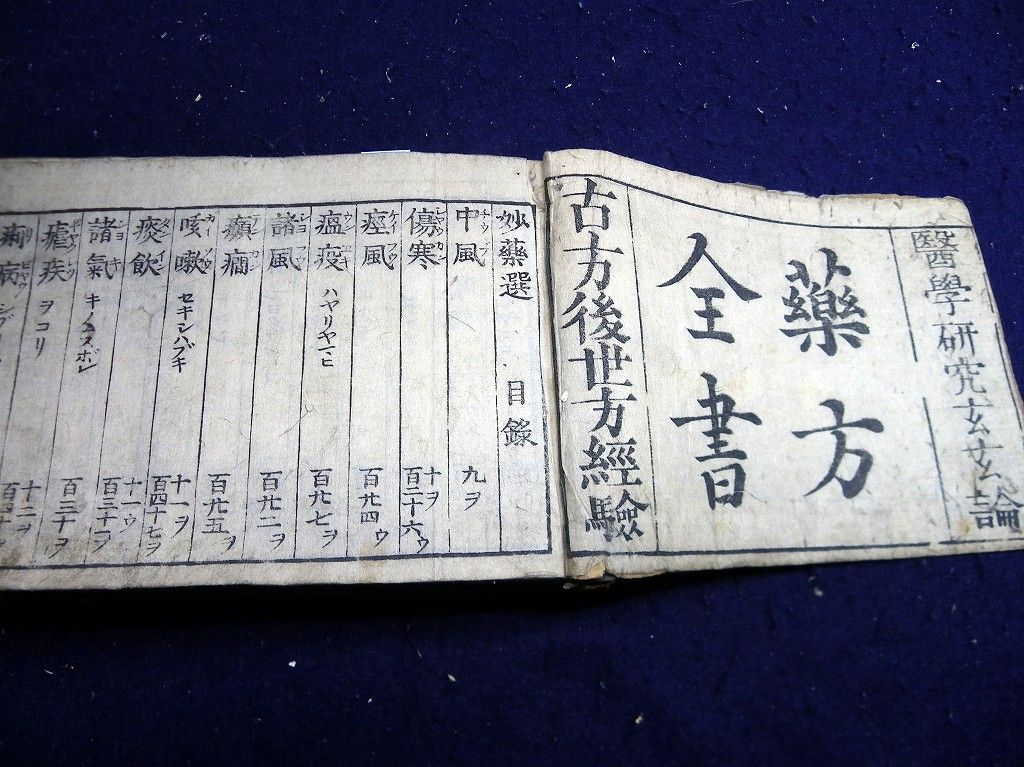 醫學研究玄玄論
藥方
全書
古方後世方經驗
妙藥選 目錄
中風 九ヲ
傷寒 十ヲ 百二十六ウ
痙風 百廿四ウ
瘟疫 ハヤリヤマヒ 百廿七ヲ
諸風 百廿二ヲ
癲癇 百廿五ヲ
咳嗽 セキシハブキ 十一ヲ 百四十七ヲ
痰飲 十一ウ 百三十一ヲ
諸氣 キノムスボレ 百三十ヲ
瘧疾 ヲコリ 十二ヲ
痢病